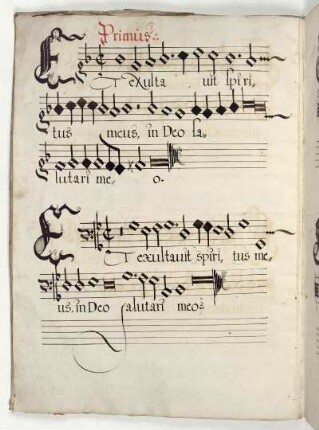 Primus:
Et exulta vit spiri,
tus meus, in Deo sa,
lutari me, o.
Et exultavit spiri, tus me,
us, in Deo salutari meo: